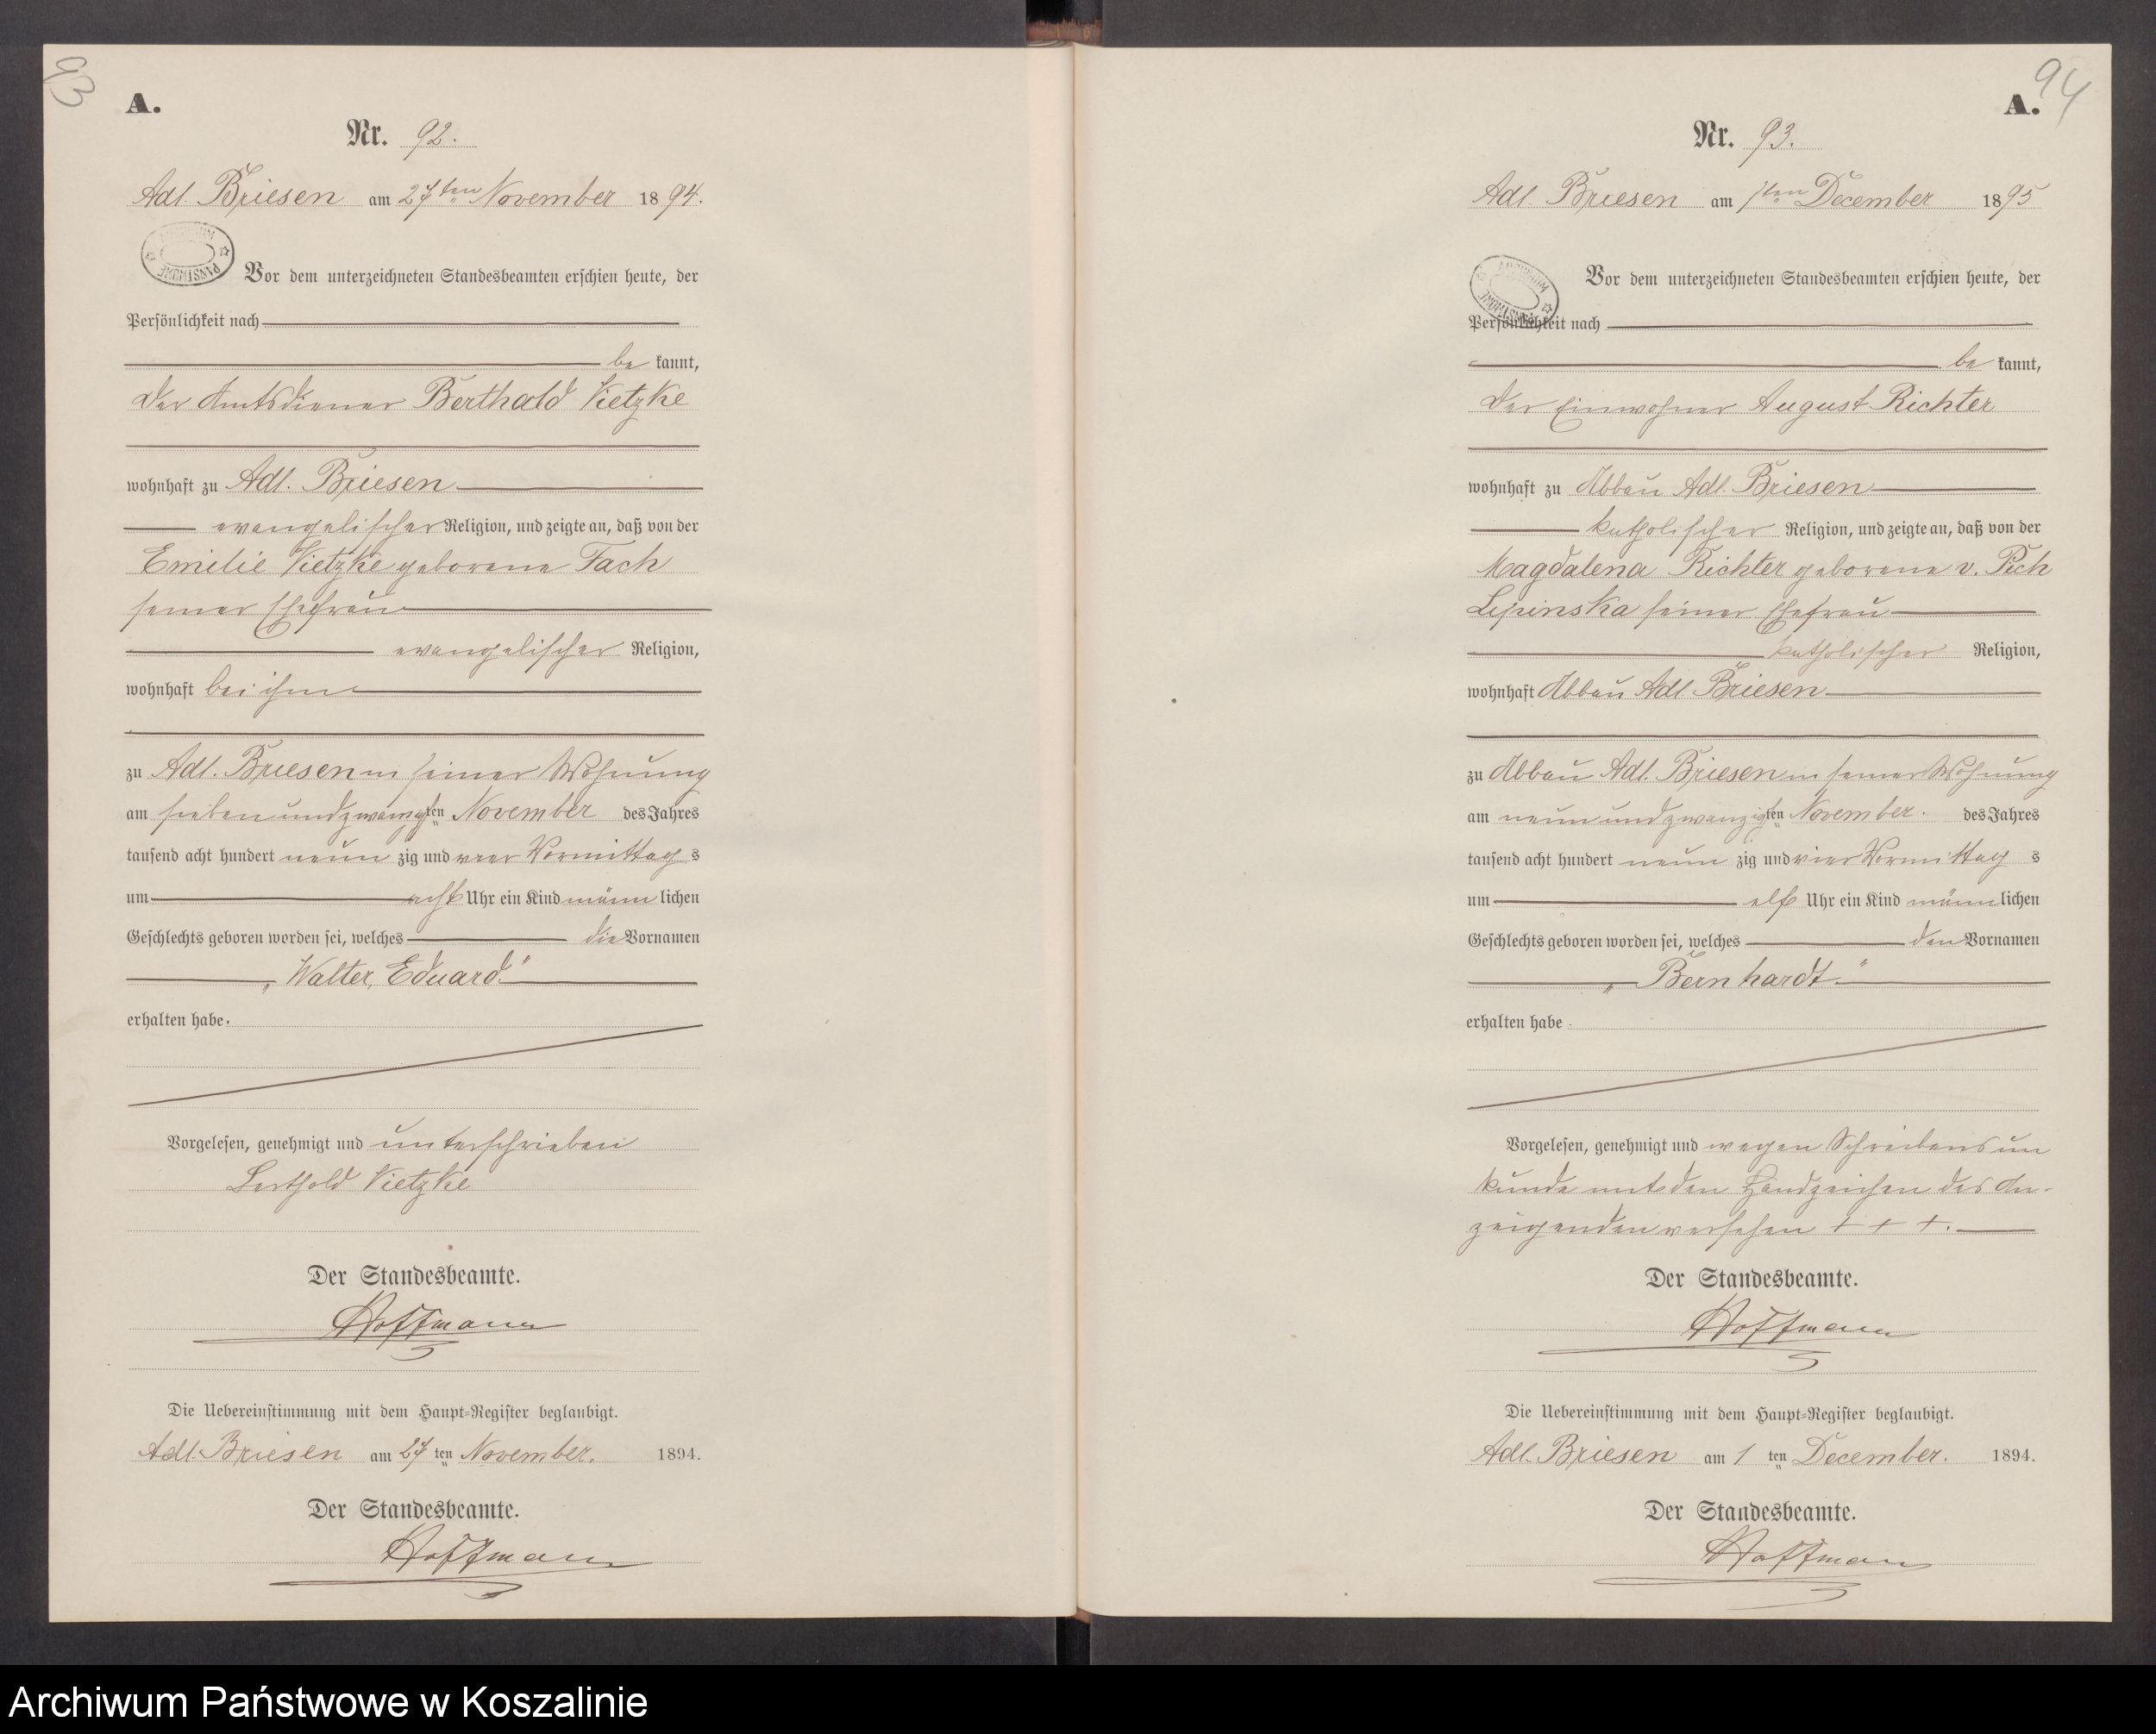 93
A.
Nr. 92.
Adl. Briesen am 27ten November 1894.
Vor dem unterzeichneten Standesbeamten erschien heute, der
Persönlichkeit nach
be kannt,
der Amtsdiener Berthold Vietzke
wohnhaft zu Adl. Briesen
evangelischer Religion, und zeigte an, daß von der
Emilie Vietzke geborene Fach
seiner Ehefrau
evangelischer Religion,
wohnhaft bei ihm
zu Adl. Briesen in seiner Wohnung
am siebenundzwanzigsten November des Jahres
tausend acht hundert neun zig und vier Vormittag s
um acht Uhr ein Kind männ lichen
Geschlechts geboren worden sei, welches die Vornamen
„Walter, Eduard“
erhalten habe.
Vorgelesen, genehmigt und unterschrieben
Berthold Vietzke
Der Standesbeamte.
Hoffmann
Die Uebereinstimmung mit dem Haupt-Register beglaubigt.
Adl. Briesen am 27 ten November. 1894.
Der Standesbeamte.
Hoffmann
94
A.
Nr. 93.
Adl. Briesen am 1ten December 1895
Vor dem unterzeichneten Standesbeamten erschien heute, der
Persönlichkeit nach
be kannt,
der Einwohner August Richter
wohnhaft zu Abbau Adl. Briesen
katholischer Religion, und zeigte an, daß von der
Magdalena Richter geborene v. Pich
Lipinska seiner Ehefrau
katholischer Religion,
wohnhaft Abbau Adl. Briesen
zu Abbau Adl. Briesen in seiner Wohnung
am neunundzwanzigten November. des Jahres
tausend acht hundert neun zig und vier Vormittag s
um elf Uhr ein Kind männ lichen
Geschlechts geboren worden sei, welches den Vornamen
„Bernhardt“
erhalten habe.
Vorgelesen, genehmigt und wegen Schreibensun
kunde mit den Handzeichen des An-
zeigenden versehen + + +.
Der Standesbeamte.
Hoffmann
Die Uebereinstimmung mit dem Haupt-Register beglaubigt.
Adl. Briesen am 1 ten December. 1894.
Der Standesbeamte.
Hoffmann
Archiwum Państwowe w Koszalinie